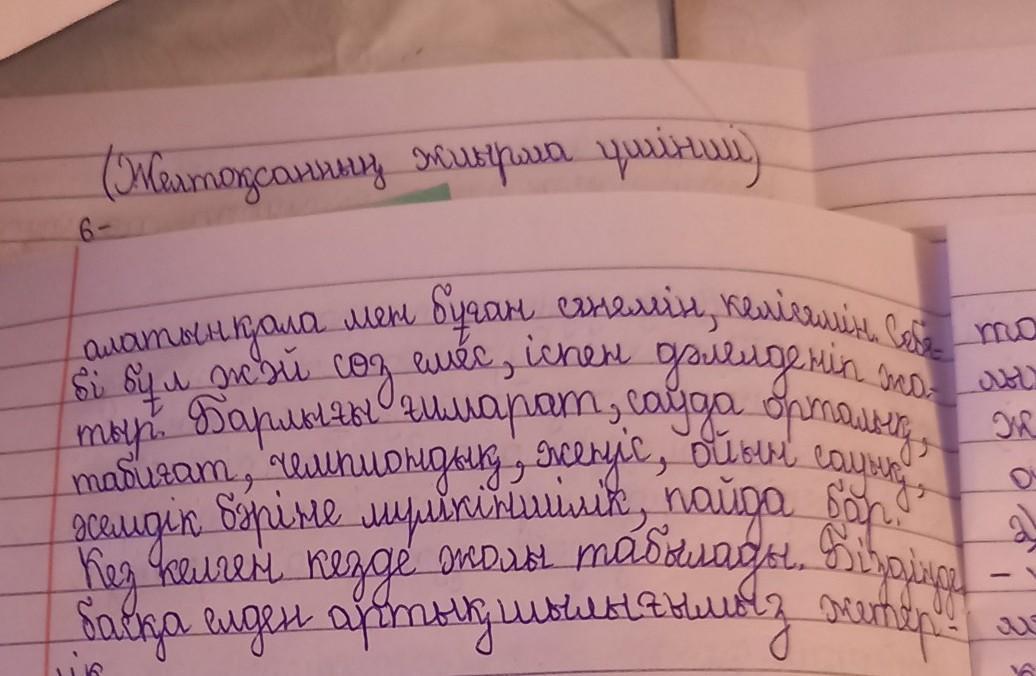 (Желтоқсанның жиырма үшінші)
6-
алатынқала мен бұған сенемін, келісемін. Себе-
бі бұл жәй сөз емес, іспен дәлелденіп жа-
тыр. Барлығы ғимарат, сауда орталық,
табиғат, чемпиондық, жеңіс, ойын сауық,
жемдік бәріне мүмкіншілік, пайда бар.
Кез келген кезде жолы табылады. Біздіңде
басқа елден артықшылығымыз жетер-
лік